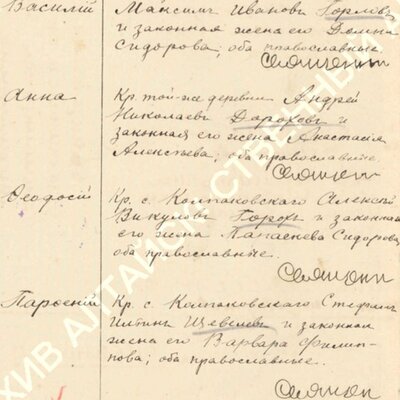 Василій
Максимъ Ивановъ Горловъ
и законная жена его Домна
Сидорова; оба православные
Анна
Кр. той-же деревни Андрей
Николаевъ Дороховъ и
законная его жена Анастасія
Алексѣева; оба православные
Ѳеодосій
Кр. с. Колпаковскаго Алексѣй
Викуловъ Горохъ и законная
его жена Сидорова,
оба православные.
Парѳеній
Кр. с. Колпаковскаго Стефанъ
Щевелевъ и законная
жена его Варвара Филип-
пова; оба православные.
ХИВ АЛТАЙС СТВЕННЫЙ